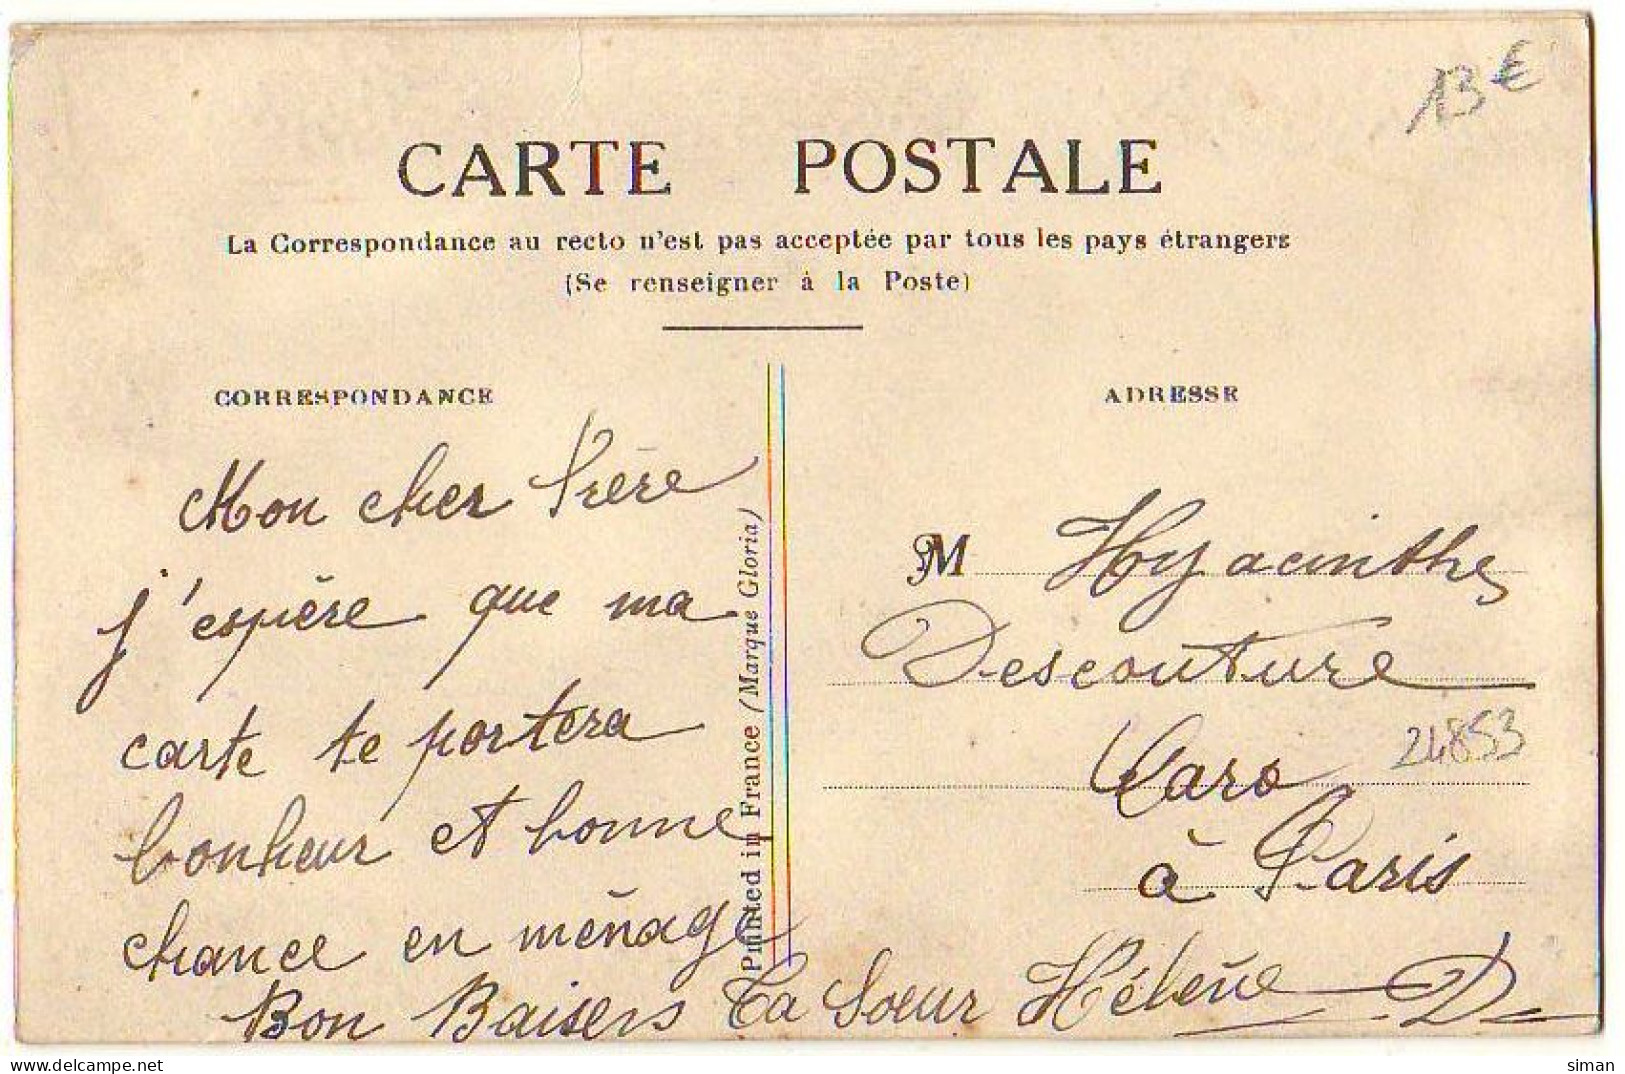 13 €
CARTE POSTALE
La Correspondance au recto n'est pas acceptée par tous les pays étrangers
(Se renseigner à la Poste)
CORRESPONDANCE
Mon cher frère
j'espère que ma
carte te portera
bonheur et bonne
chance en ménage
Bon Baisers Ta Sœur Hélène D
Printed in France (Marque Gloria)
ADRESSE
M Hyacinthe
Descouture
24853
à Paris
siman